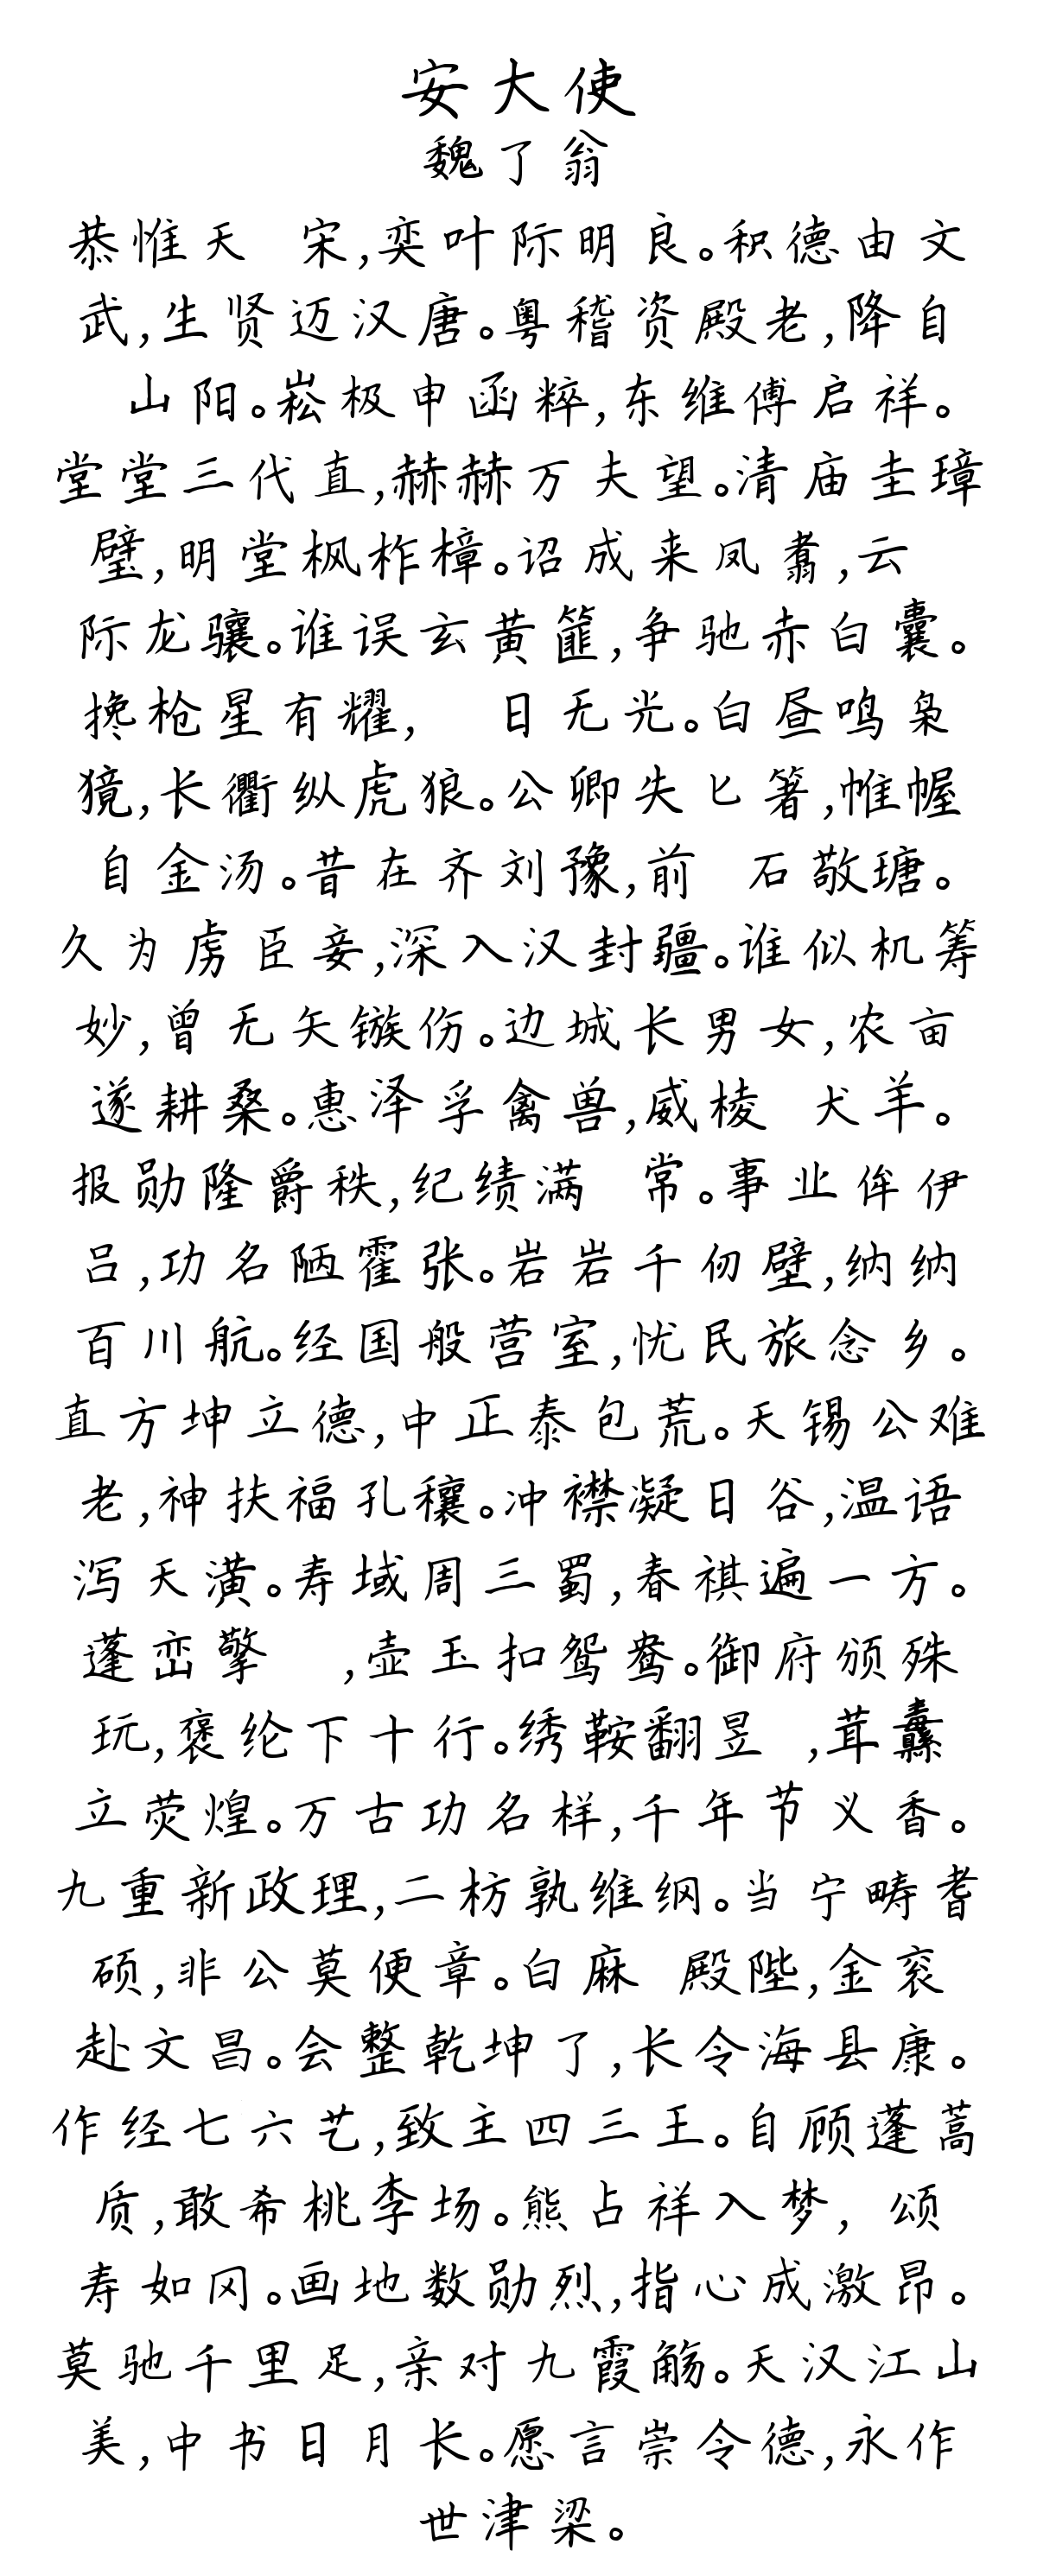 安大使
魏了翁
恭惟天 宋,奕叶际明良。积德由文
武,生贤迈汉唐。粤稽资殿老,降自
山阳。崧极申函粹,东维傅启祥。
堂堂三代直,赫赫万夫望。清庙圭璋
璧,明堂枫柞樟。诏成来凤翥,云
际龙骧。谁误玄黄篚,争驰赤白囊。
搀枪星有耀, 日无光。白昼鸣枭
獍,长衢纵虎狼。公卿失匕箸,帷幄
自金汤。昔在齐刘豫,前 石敬瑭。
久为虏臣妾,深入汉封疆。谁似机筹
妙,曾无矢镞伤。边城长男女,农亩
遂耕桑。惠泽孚禽兽,威棱 犬羊。
报勋隆爵秩,纪绩满 常。事业侔伊
吕,功名陋霍张。岩岩千仞壁,纳纳
百川航。经国般营室,忧民旅念乡。
直方坤立德,中正泰包荒。天锡公难
老,神扶福孔穰。冲襟凝日谷,温语
泻天潢。寿域周三蜀,春祺遍一方。
蓬峦擎 ,壶玉扣鸳鸯。御府颁殊
玩,褒纶下十行。绣鞍翻昱 ,茸纛
立荧煌。万古功名样,千年节义香。
九重新政理,二枋孰维纲。当宁畴耆
硕,非公莫便章。白麻 殿陛,金衮
赴文昌。会整乾坤了,长令海县康。
作经七六艺,致主四三王。自顾蓬蒿
质,敢希桃李场。熊占祥入梦, 颂
寿如冈。画地数勋烈,指心成激昂。
莫驰千里足,亲对九霞觞。天汉江山
美,中书日月长。愿言崇令德,永作
世津梁。